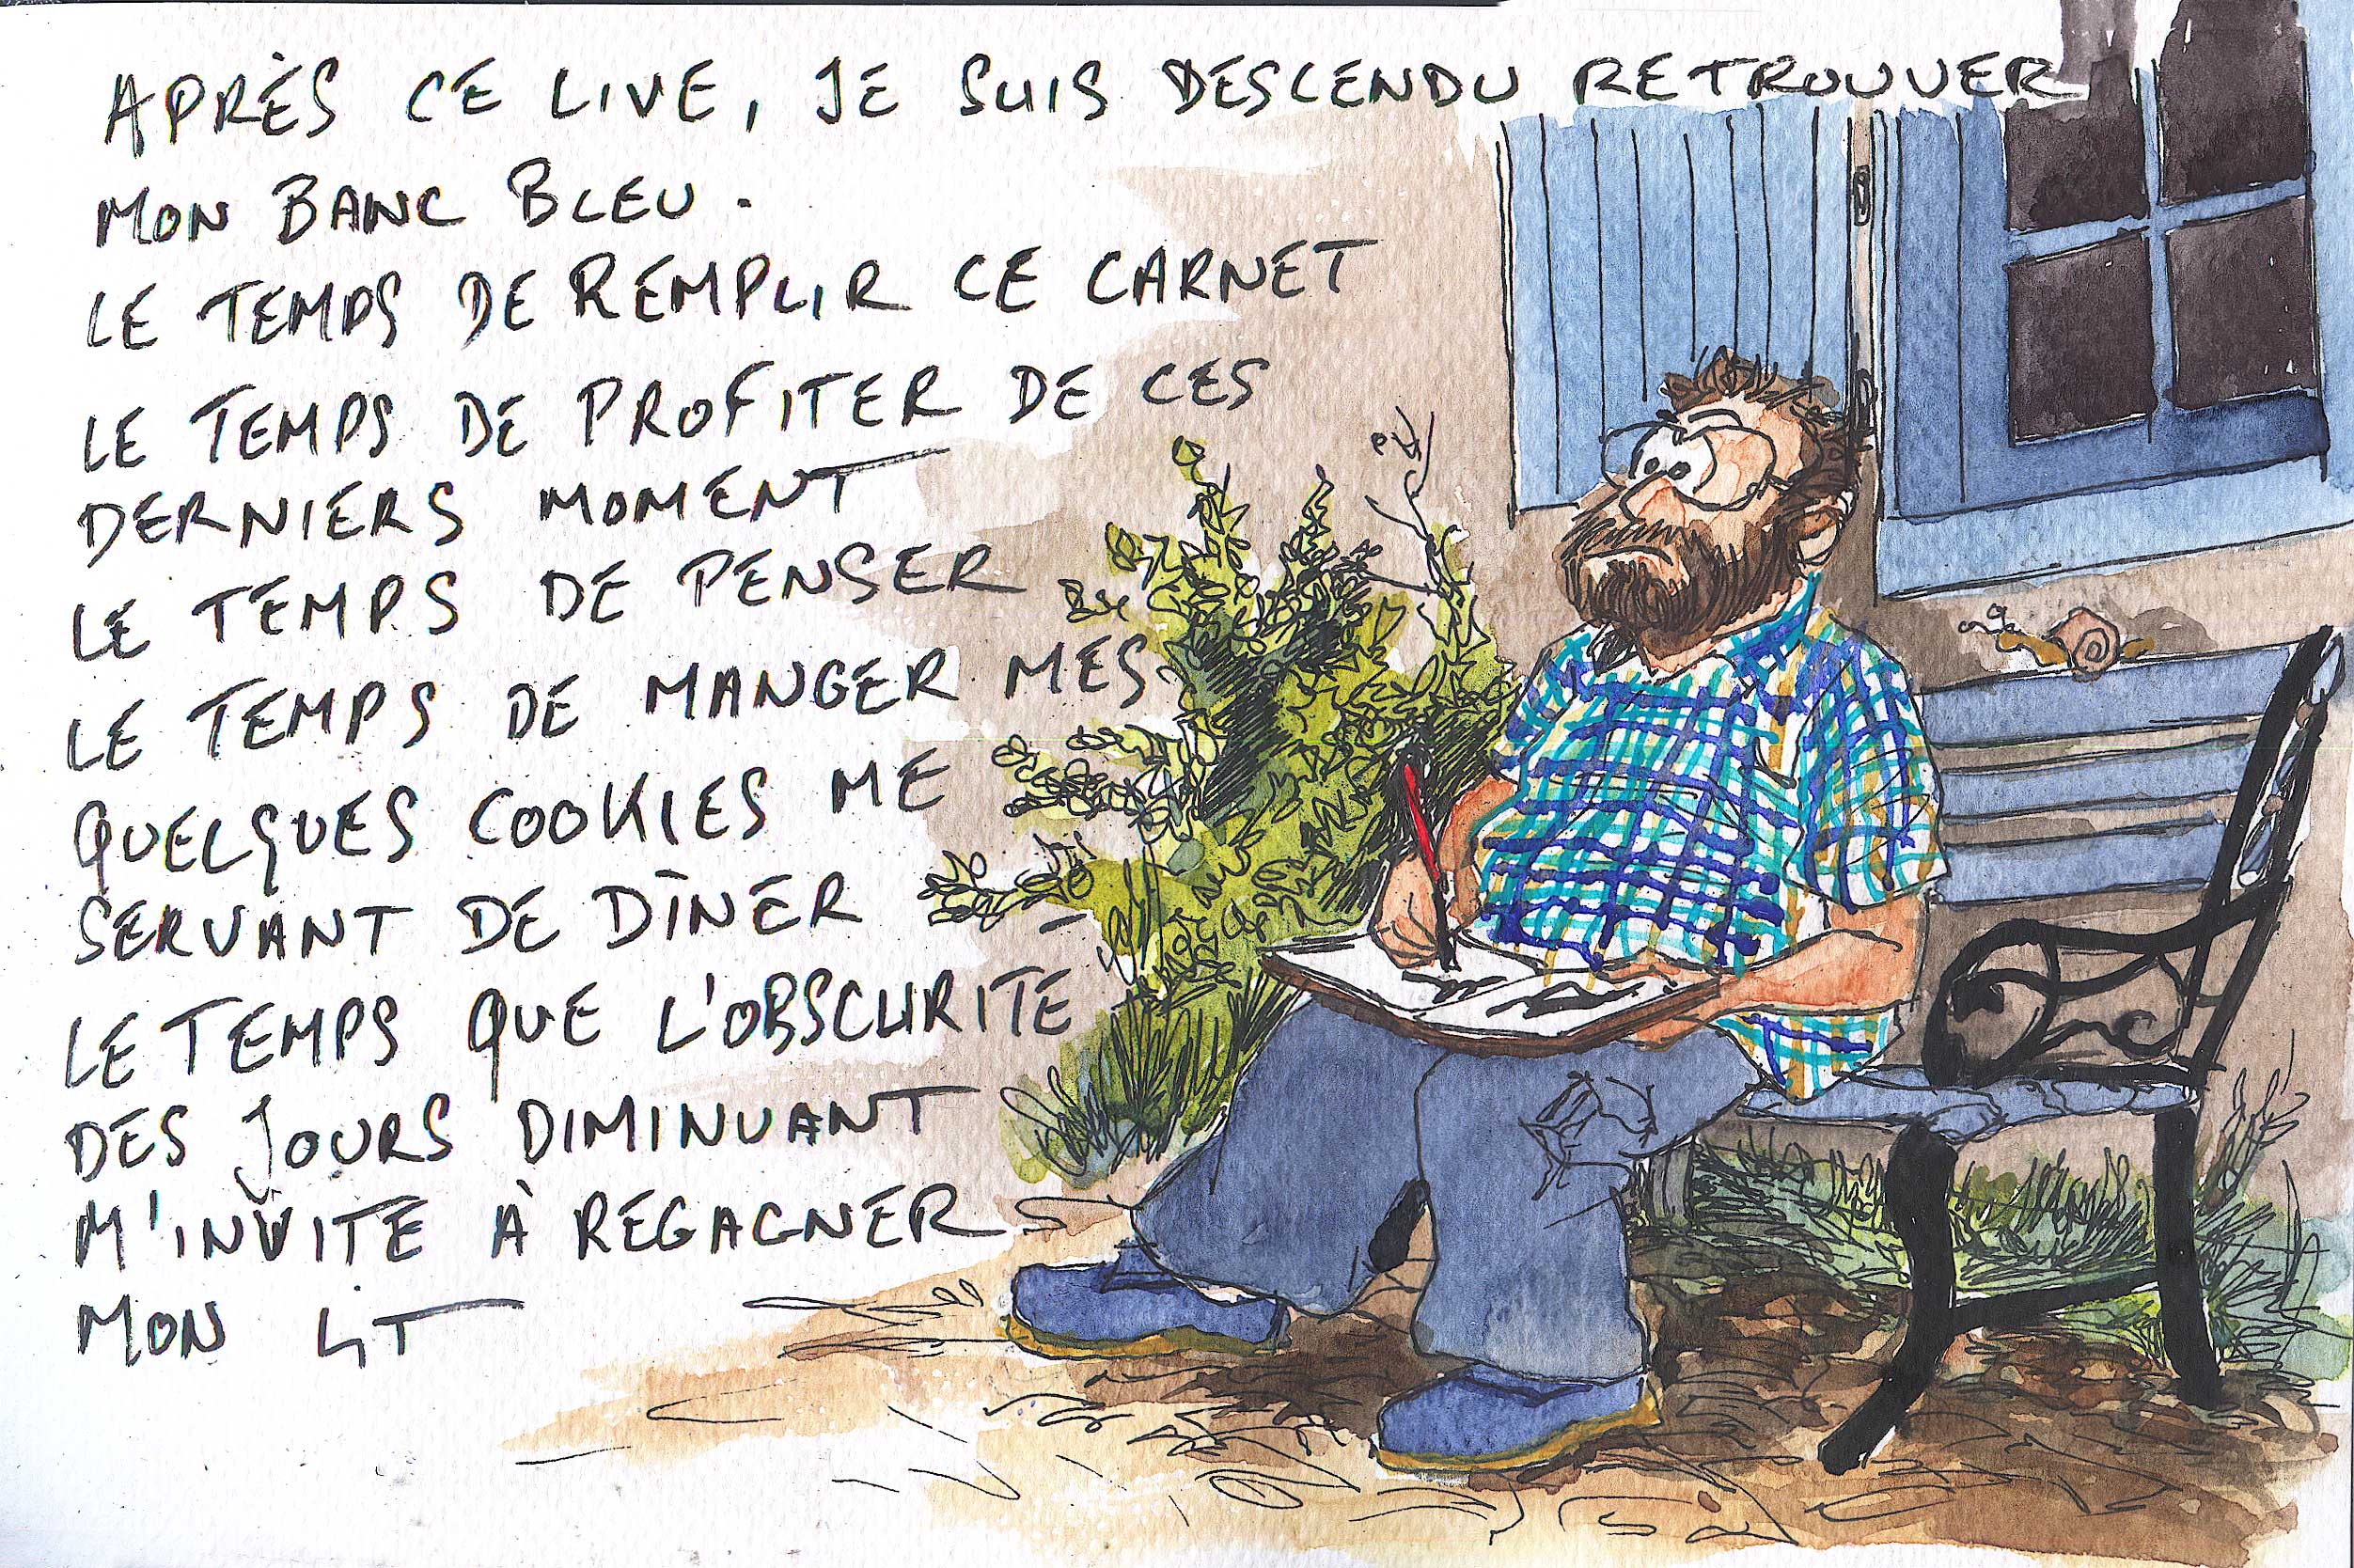 APRÈS CE LIVE, JE SUIS DESCENDU RETROUVER
MON BANC BLEU.
LE TEMPS DE REMPLIR CE CARNET
LE TEMPS DE PROFITER DE CES
DERNIERS MOMENT
LE TEMPS DE PENSER
LE TEMPS DE MANGER MES
QUELQUES COOKIES ME
SERVANT DE DÎNER
LE TEMPS QUE L'OBSCURITÉ
DES JOURS DIMINUANT
M'INVITE À REGAGNER
MON LIT